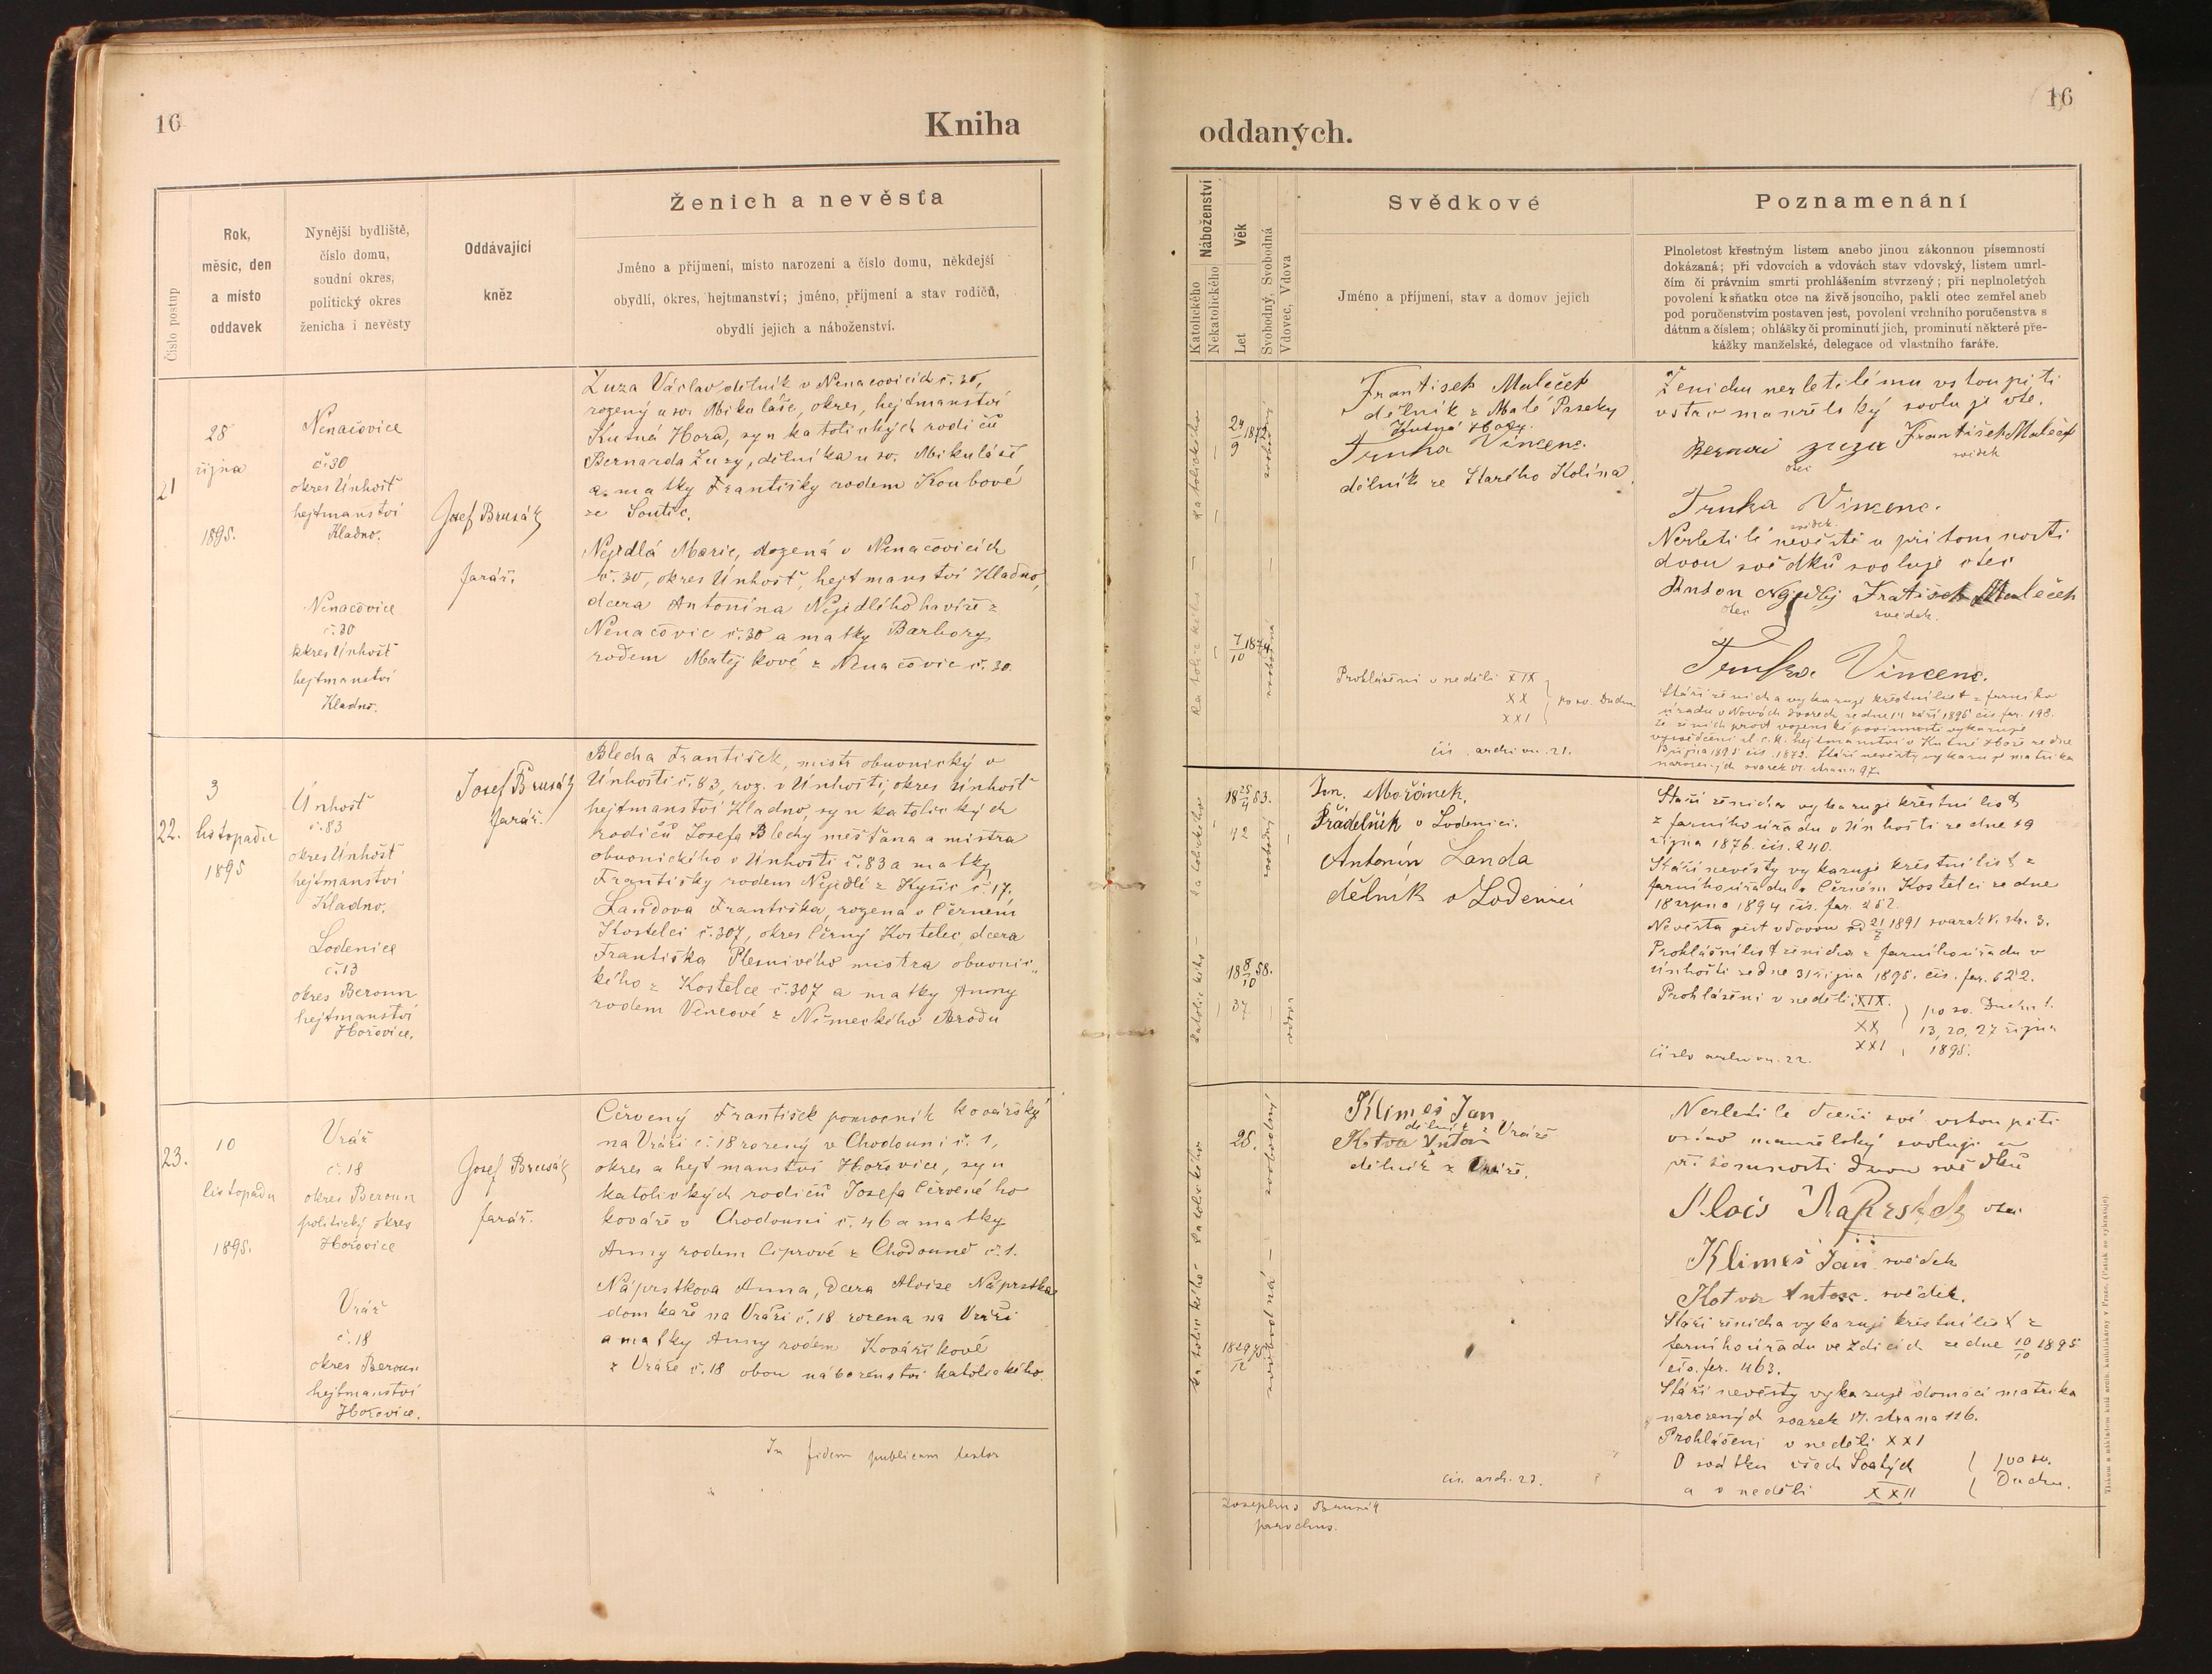 16
Kniha
Číslo postup
Rok,
měsíc, den
a místo
oddavek
Nynější bydliště,
číslo domu,
soudní okres,
politický okres
ženicha i nevěsty
Oddávající
kněz
Ženich a nevěsta
Jméno a příjmení, místo narození a číslo domu, někdejší
obydlí, okres, hejtmanství; jméno, příjmení a stav rodičů,
obydlí jejich a náboženství.
21
28
října
1895.
Nenačovice
č. 30
okres Únhošť
hejtmanství
Kladno.
Nenačovice
č. 30
okres Únhošť
hejtmanství
Kladno.
Josef Brusák
farář.
Zuza Václav dělník v Nenačovicích č. 30,
rozený u sv. Mikuláše, okres, hejtmanství
Kutná Hora, syn katolických rodičů
Bernarda Zuzy, dělníka u sv. Mikuláše
a matky Františky rodem Koubové
ze Soutic.
Nejedlá Marie, rozená v Nenačovicích
č. 30, okres Únhošť, hejtmanství Kladno,
dcera Antonína Nejedlého havíře z
Nenačovic č. 30 a matky Barbory
rodem Matějkové z Nenačovic č. 30.
22.
3
listopadu
1895
Únhošť
č. 83
okres Únhošť
hejtmanství
Kladno.
Lodenice
č. 13
okres Beroun
hejtmanství
Hořovice.
Josef Brusák
farář.
Blecha František, mistr obuvnický v
Únhošti č. 83, roz. v Únhošti, okres Únhošť
hejtmanství Kladno, syn katolických
rodičů Josefa Blechy měšťana a mistra
obuvnického v Únhošti č. 83 a matky
Františky rodem Nejedlé z Kyšic č. 17.
Landova Františka, rozena v Černém
Kostelci č. 307, okres Černý Kostelec, dcera
Františka Plesnivého mistra obuvnic„
kého z Kostelce č. 307 a matky Anny
rodem Venclové z Německého Brodu
23.
10
listopadu
1895.
Vráž
č. 18
okres Beroun
politický okres
Hořovice
Vráž
č. 18
okres Beroun
hejtmanství
Hořovice.
Josef Brusák
farář.
Červený František pomocník kovářský
na Vráži č. 18 rozený v Chodouni č. 1,
okres a hejtmanství Hořovice, syn
katolických rodičů Josefa Červeného
kováře v Chodouni č. 46 a matky
Anny rodem Ciprové z Chodouně č. 1.
Náprstkova Anna, dcera Aloise Náprstka
domkaře na Vráži č. 18 rozena na Vráži
a matky Anny rodem Kovaříkové
z Vráže č. 18 obou náboženství katolického.
In fidem publicam testor
16
oddaných.
Náboženství
Katolického
Nekatolického
Věk
Let
Svobodný, Svobodná
Vdovec, Vdova
Svědkové
Jméno a příjmení, stav a domov jejich
Poznamenání
Plnoletost křestným listem anebo jinou zákonnou písemností
dokázaná; při vdovcích a vdovách stav vdovský, listem umrl-
čím či právním smrti prohlášením stvrzený; při neplnoletých
povolení k sňatku otce na živě jsoucího, pakli otec zemřel aneb
pod poručenstvím postaven jest, povolení vrchního poručenstva s
dátum a číslem; ohlášky či prominutí jich, prominutí některé pře-
kážky manželské, delegace od vlastního faráře.
katolického
24/9 1872
svobodný
katolického
7/10 1874
svobodná
František Maleček
dělník z Malé Paseky
Kutná Hora.
Trnka Vincenc.
dělník ze Starého Kolína.
Prohlášení v neděli XIX
XX
XXI
po sv. Duchu
čís. archivu. 21.
Ženichu nezletilému vstoupiti
v stav manželský svoluje otec.
Bernard Zuza František Maleček
otec
svědek
Trnka Vincenc.
svědek.
Nezletilé nevěstě v přítomnosti
dvou svědků svoluje otec
Anton Nejedlý Fratišek Maleček
otec
svědek.
Trnka Vincenc.
Stáří ženicha vykazuje křestní list z farního
úřadu v Nových Dvorech ze dne 11 září 1895 čís. far. 198.
vysvědčení c. k. hejtmanství v Kutné Hoře ze dne
října 1895 čís. 1872. Stáří nevěsty vykazuje matrika
narozených svazek VI. strana 97.
katolického
18 25/4 53.
42
svobodný
katolického
18 8/10 58.
37
vdova
Jan. Mořánek.
Přadelník v Lodenici.
Antonín Landa
dělník v Lodenici
Stáří ženicha vykazuje křestní list
z farního úřadu v Únhošti ze dne 19
října 1876. čís. 240.
Stáří nevěsty vykazuje křestní list z
farního úřadu v Černém Kostelci ze dne
18 srpna 1894 čís. far. 252.
Nevěsta jest vdovou od 21/7 1891 svazek V. str. 3.
Prohlášní list ženicha z farního úřadu v
Únhošti ze dne 31 října 1895. čís. far. 622.
Prohlášení v neděli XIX.
XX
XXI
po sv. Duchu t.
13, 20, 27 října
1895.
číslo archivu. 22.
katolického
25.
svobodný
katolického
18 29/12
svobodná
Klimeš Jan
dělník z Vráže
Kotva Anton
dělník z Vráže.
čís. arch. 23.
Nezletilé dceři své vstoupiti
v stav manželský svoluje v
přítomnosti dvou svědků
Alois Naprstek otec
Klimeš Jan svědek
Kotva Anton. svědek.
Stáří ženicha vykazuje křestní list z
farního úřadu ve Zdicích ze dne 10/10 1895
čís. far. 463.
Stáří nevěsty vykazuje domácí matrika
narozených svazek VI. strana 116.
Prohlášeni v neděli XXI
O svátku všech Svatých
a v neděli XXII
po sv.
Duchu.
Josephus Brusák
parochus.